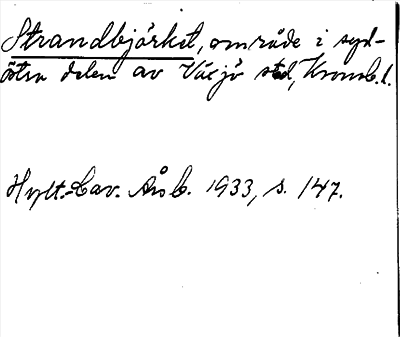 Strandbjörket, område i syd-
östra delen av Växjö stad, Kronob. l.
Hylt.-Cav. Årsb. 1933, s. 147.